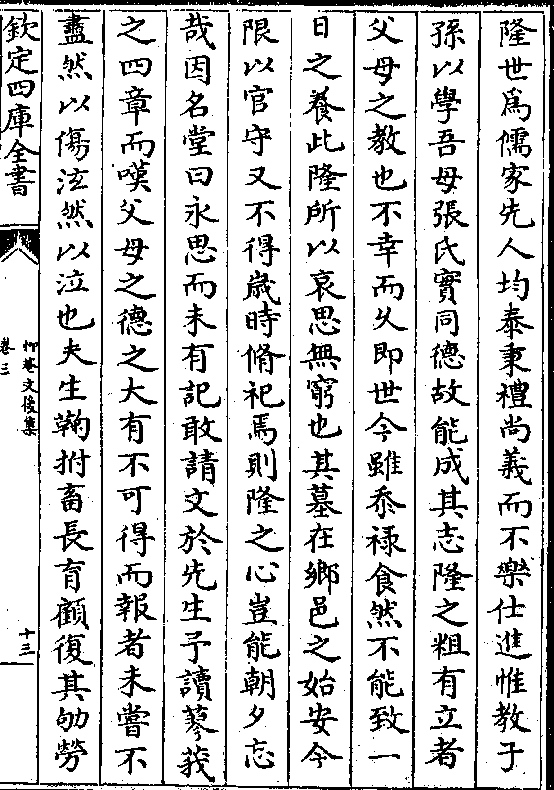 隆世爲儒家先人均泰秉禮尚義而不樂仕進惟教子
孫以學吾母張氏實同德故能成其志隆之粗有立者
父母之教也不幸而父即世今雖忝祿食然不能致一
日之養此隆所以哀思無窮也其墓在鄉邑之始安今
限以官守又不得歲時脩祀焉則隆之心豈能朝夕忘
哉因名堂曰永思而未有記敢請文於先生予讀蓼莪
之四章而嘆父母之德之大有不可得而報者未嘗不
盡然以傷泫然以泣也夫生鞠拊畜長育顧復其劬勞
欽定四庫全書
抑菴文後集
卷三
十三